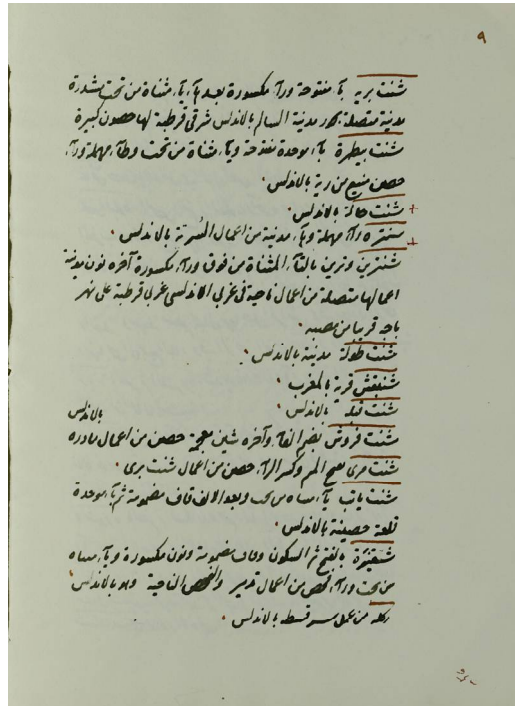 ٩
شنت برية بآء مفتوحة ورآء مكسورة بعدها يآء مثناة من تحت مشددة
مدينة متصلة بحوز مدينة السالم بالاندلس شرقي قرطبة لها حصون كبيرة
شنت بيطرة بآء موحدة مفتوحة ويآء مثناة من تحت وطآء مهملة ورآء
حصن منيع من رية بالاندلس
شنت حالة بالاندلس
شنتره ورآء مهملة وهآء مدينة من اعمال بالاندلس
شنترين وترين بالتآء المثناة من فوق ورآء مكسورة آخره نون مدينة
اعمالها متصلة من اعمال ناحية في غربي الاندلس غربي قرطبة على نهر
باجه قريبا من مصبه
شنت طولة مدينة بالاندلس
شنقنش قرية بالمغرب
شنت قبلة بالاندلس
شنت فروش بضم الفآء وآخره شين معجمة حصن من اعمال مارده بالاندلس
شنت مرى بفتح الميم وكسر الرآء حصن من اعمال شنت برى
شنت ياقب يآء مثناه من تحت وبعد الالف قاف مضمومة ثم بآء موحدة
قلعة حصينة بالاندلس
شنقنيرة بالفتح ثم السكون وقاف مضمومة ونون مكسورة ويآء مثناه
من تحت ورآء فحص من اعمال تدمير والفحص الناحية وهو بالاندلس
ركله من عمل سرقسطه بالاندلس